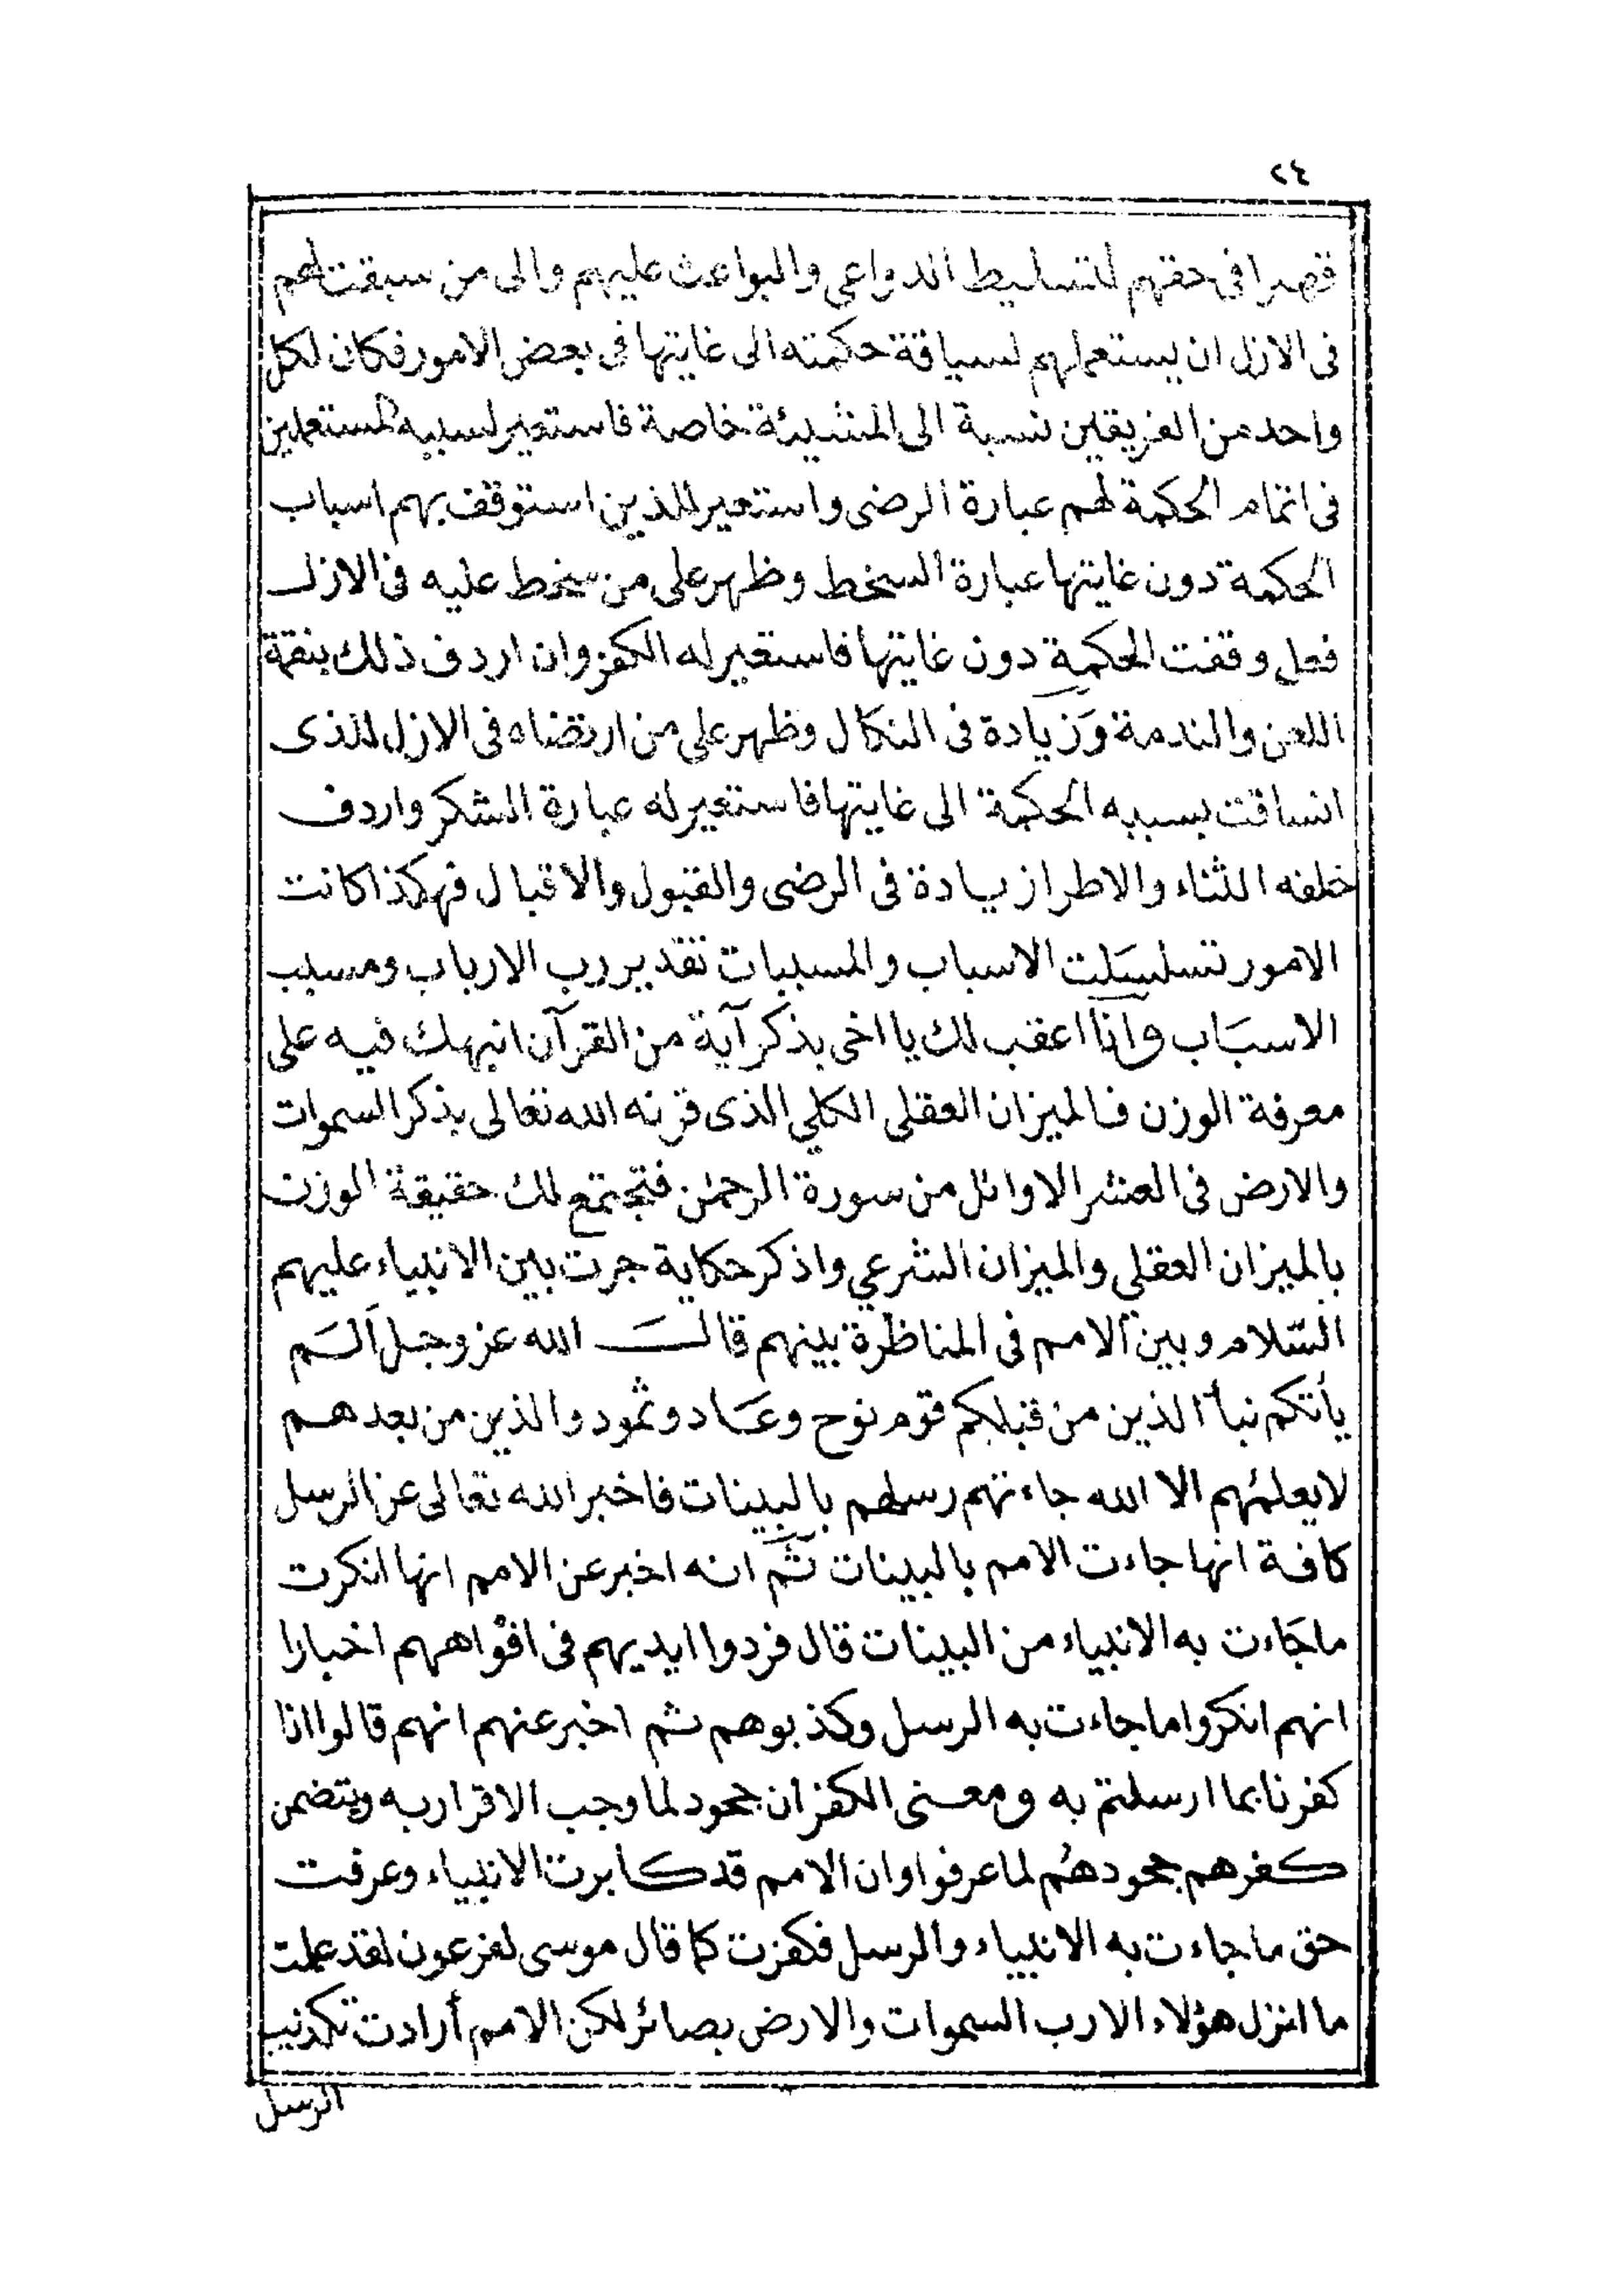 ٢٤
قهرا فى حقهم لتسليط الدواعى والبواعث عليهم والى من سبقت لهم
فى الازل ان يستعملهم لسياقة حكمته الى غايتها فى بعض الامور فكان لكل
واحد من الفريقين نسبة الى المشيئة خاصة فاستعير لسببه المستعملين
فى اتمام الحكمة لهم عبارة الرضى واستعير للذين استوقف بهم اسباب
الحكمة دون غايتها عبارة السخط وظهر على من سخط عليه فى الازل
فعل وقفت الحكمة دون غايتها فاستعير له الكفر وان اردف ذلك بنقمة
اللعن والندمة وَزيادة فى النكال وظهر على من ارتضاه فى الازل للذى
انساقت بسببه الحكمة الى غايتها فاستعير له عبارة الشكر واردف
خلفه الثناء والاطرا زيادة فى الرضى والقبول والاقبال فهكذا كانت
الامور تسلسَلت الاسباب والمسببات تقدير رب الارباب ومسبب
الاسبَاب وانا اعقب لك يا اخى بذكر آية من القرآن انبهك فيه على
معرفة الوزن فالميزان العقلى الكلي الذى قرنه الله تعالى بذكر السموات
والارض فى العشر الاوائل من سورة الرحمن فتجتمع لك حقيقة الوزن
بالميزان العقلى والميزان الشرعي واذكر حكاية جرت بين الانبياء عليهم
السّلام وبين الامم فى المناظرة بينهم قالَ الله عز وجل اَلَم
يأتكم نبأ الذين من قبلكم قوم نوح وعَاد وثمود والذين من بعدهم
لا يعلمُهم الا الله جاءتهم رسلهم بالبينات فاخبر الله تعالى عن الرسل
كافة انها جاءت الامم بالبينات ثم انه اخبر عن الامم انها انكرت
ما جَاءت به الانبياء من البينات قال فردوا ايديهم فى افوْاههم اخبارا
انهم انكروا ما جاءت به الرسل وكذبوهم ثم اخبر عنهم انهم قالوا انا
كفرنا بما ارسلتم به ومعنى الكفران جحود لما وجب الاقرار به ويتضمن
كفرهم جحودهُم لما عرفوا وان الامم قد كابرت الانبياء وعرفت
حق ما جاءت به الانبياء والرسل فكفرت كما قال موسى لفرعون لقد علمت
ما انزل هؤلاء الا رب السموات والارض بصائر لكن الامم أرادت تكذيب
الرسل